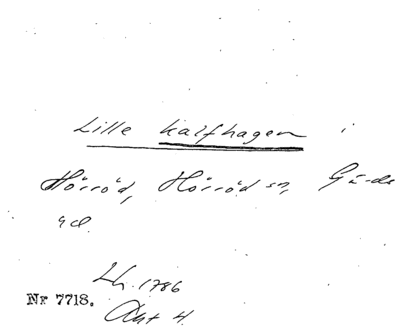 Lille kalfhagen i
Hörröd, Hörröd sn, Gärds
hd.
Lh. 1786
Akt 4.
Nr 7718.